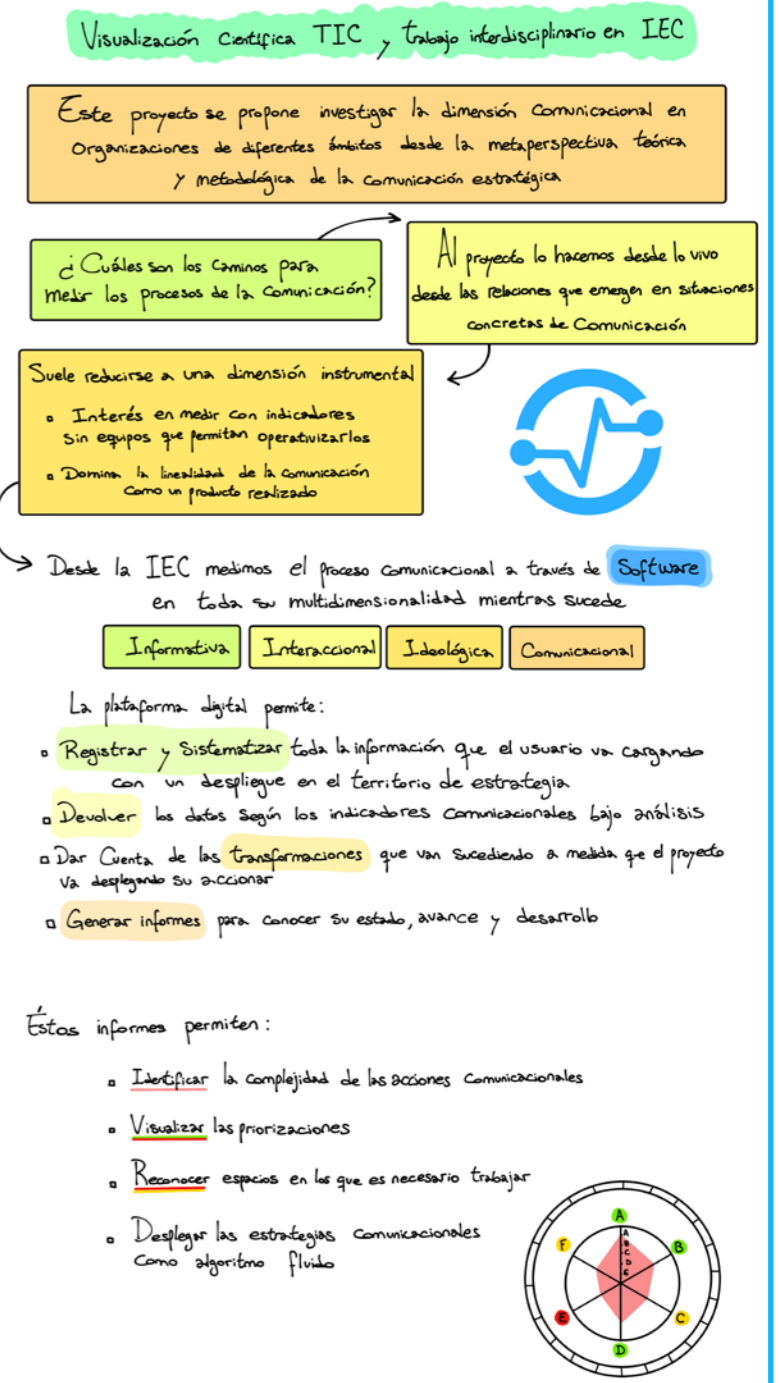 Visualización Científica TIC y trabajo interdisciplinario en IEC
Este proyecto se propone investigar la dimensión Comunicacional en
Organizaciones de diferentes ámbitos desde la metaperspectiva teórica
y metodológica de la comunicación estratégica
¿Cuáles son los Caminos para
medir los procesos de la Comunicación?
Al proyecto lo hacemos desde lo vivo
desde las relaciones que emergen en situaciones
concretas de Comunicación
Suele reducirse a una dimensión instrumental
Interés en medir con indicadores
Sin equipos que permitan operativizarlos
Domina la linealidad de la comunicación
Como un producto realizado
Desde la IEC medimos el proceso comunicacional a través de Software
en toda su multidimensionalidad mientras sucede
Informativa Interaccional Ideológica Comunicacional
La plataforma digital permite:
Registrar y Sistematizar toda la información que el usuario va cargando
con un despliegue en el territorio de estrategia
Devolver los datos según los indicadores comunicacionales bajo análisis
Dar Cuenta de las transformaciones que van sucediendo a medida que el proyecto
va desplegando su accionar
Generar informes para conocer su estado, avance y desarrollo
Éstos informes permiten:
Identificar la complejidad de las acciones comunicacionales
Visualizar las priorizaciones
Reconocer espacios en los que es necesario trabajar
Desplegar las estrategias comunicacionales
Como algoritmo fluido
A
F
B
A
B
C
D
E
E
C
D